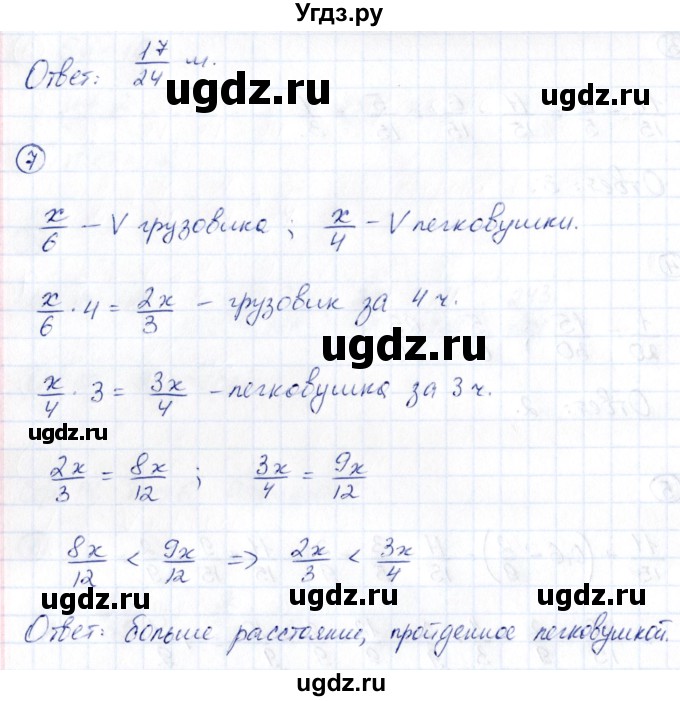 Угдз.ру
Ответ: 17/24 м.
ugdz.ru
⑦
x/6 – V грузовика ; x/4 – V легковушки.
ugdz.ru
x/6 · 4 = 2x/3 – грузовик за 4 ч.
ugdz.ru
x/4 · 3 = 3x/4 – легковушка за 3 ч.
ugdz.ru
2x/3 = 8x/12 ; 3x/4 = 9x/12
ugdz.ru
8x/12 < 9x/12 => 2x/3 < 3x/4
ugdz.ru ugdz.ru
Ответ: больше расстояние, пройденное легковушкой.
ugdz.ru